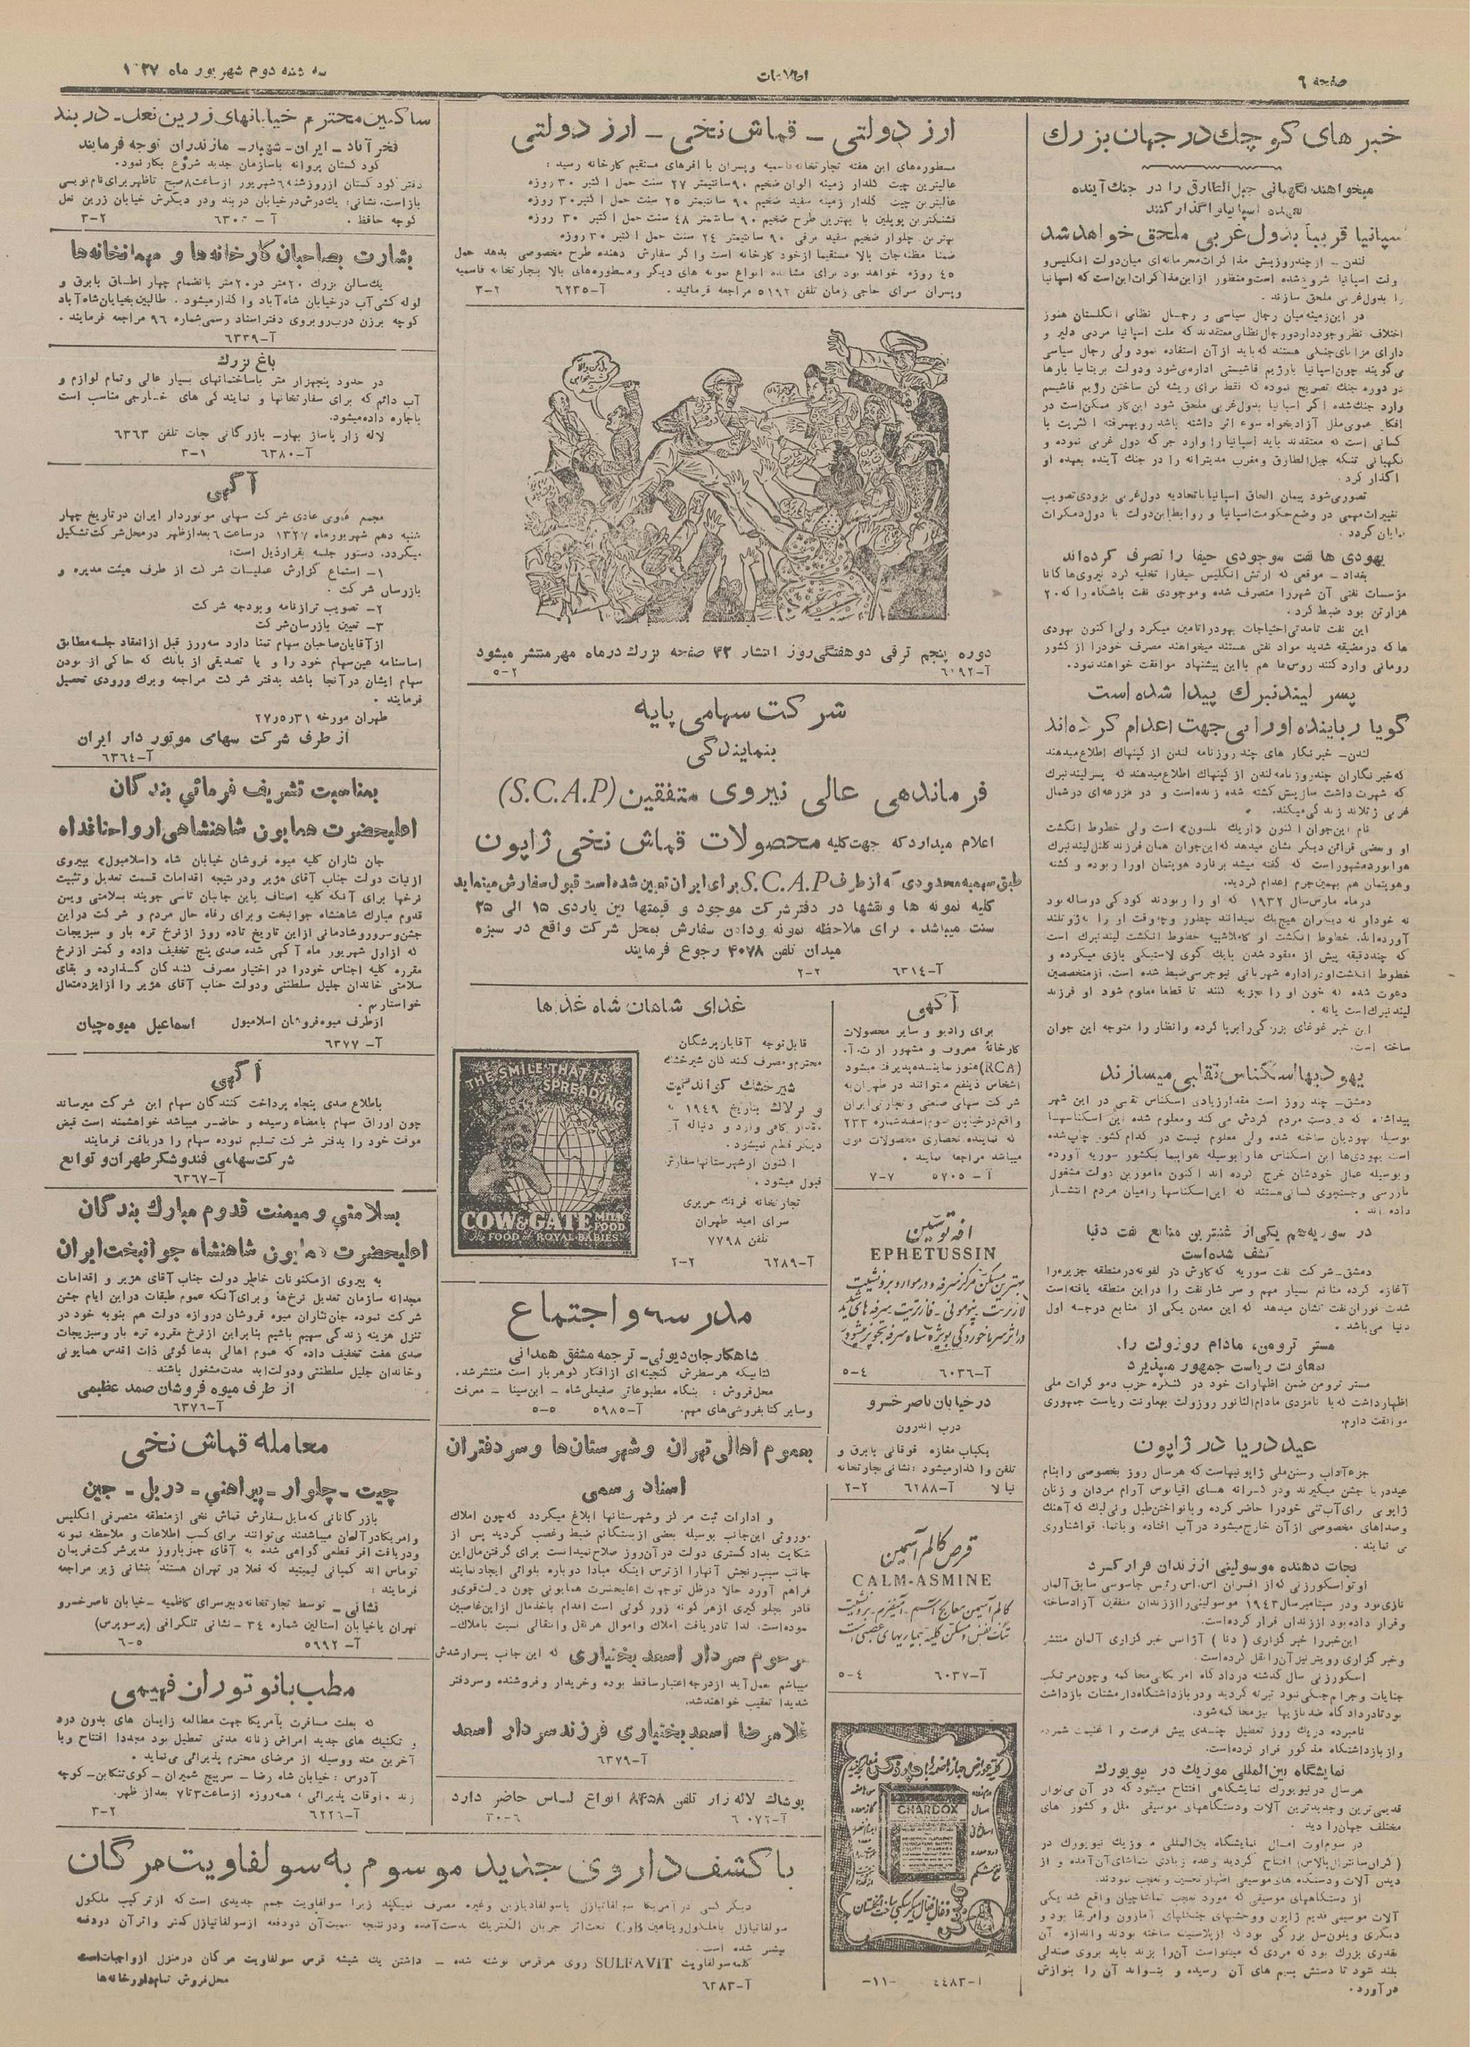 صفحه ۶
اطلاعات
سه شنبه دوم شهریور ماه ۱۳۲۷
خبرهای کوچك درجهان بزرك
میخواهند نگهبانی جبل‌الطارق را در جنك آینده
بعهده اسپانیا واگذار کنند
اسپانیا قریباً بدول غربی ملحق خواهد شد
لندن - از چند روز پیش مذاکرات محرمانه‌ای میان دولت انگلیس و
دولت اسپانیا شروع شده است و منظور از این مذاکرات این است که اسپانیا
را بدول غربی ملحق سازند.
در این زمینه میان رجال سیاسی و رجال نظامی انگلستان هنوز
اختلاف نظر وجود دارد رجال نظامی معتقدند که ملت اسپانیا مردمی دلیر و
دارای مزایای جنگی هستند که باید از آن استفاده نمود ولی رجال سیاسی
می‌گویند چون اسپانیا با رژیم فاشیستی اداره میشود و دولت بریتانیا بارها
در دوره جنك تصریح نموده که فقط برای ریشه کن ساختن رژیم فاشیسم
وارد جنك شده اگر اسپانیا بدول غربی ملحق شود این کار ممکن است در
افکار عمومی ملل آزادیخواه سوء اثر داشته باشد رویهمرفته اکثریت با
کسانی است که معتقدند باید اسپانیا را وارد جرگه دول غربی نموده و
نگهبانی تنگه جبل‌الطارق و مغرب مدیترانه را در جنك آینده بعهده او
واگذار کرد.
تصور می‌شود پیمان الحاق اسپانیا باتحادیه دول غربی بزودی تصویب
تغییرات مهمی در وضع حکومت اسپانیا و روابط این دولت با دول دمکرات
نمایان گردد.
یهودی ها نفت موجودی حیفا را تصرف کرده‌اند
بغداد - موقعی که ارتش انگلیس حیفا را تخلیه کرد نیروی هاگانا
مؤسسات نفتی آن شهر را متصرف شده و موجودی نفت باشگاه را که ۲۰
هزار تن بود ضبط کرد.
این نفت تا مدتی احتیاجات یهود را تامین میکرد ولی اکنون یهودی
ها که در مضیقه شدید مواد نفتی هستند میخواهند مصرف خود را از کشور
رومانی وارد کنند روس‌ها هم با این پیشنهاد موافقت خواهند نمود.
پسر لیندنبرك پیدا شده است
گویا رباینده او را بی جهت اعدام کرده‌اند
لندن - خبرنگار های چند روزنامه لندن از کپنهاك اطلاع میدهند
که خبرنگاران چند روزنامه لندن از کپنهاك اطلاع میدهند که پسر لیندنبرك
که شهرت داشت سازیش کشته شده زنده است و در مزرعه‌ای در شمال
غربی ژتلاند زندگی میکند.
نام این جوان اکنون «اریك نلسون» است ولی خطوط انگشت
او و بعضی قرائن دیگر نشان میدهد که این جوان همان فرزند کلنل لیندنبرك
هوانورد مشهور است که گفته میشد برنارد هوپتمان او را ربوده و کشته
و هوپتمان هم بهمین جرم اعدام گردید.
در ماه مارس سال ۱۹۳۲ که او را ربودند کودکی دو ساله بود
نه خود او نه دیگران هیچ یك نمیدانند چطور و چه وقت او را به ژوتلند
آورده‌اند. خطوط انگشت او کاملا شبیه خطوط انگشت لیندنبرك است
که چند دقیقه پیش از مفقود شدن با یك گوی لاستیکی بازی میکرده و
خطوط انگشت او در اداره شهربانی نیوجرسی ضبط شده است. از متخصصین
دعوت شده که خون او را تجزیه کنند تا قطعا معلوم شود او فرزند
لیندنبرك است یا نه.
این خبر غوغای بزرگی را برپا کرده و انظار را متوجه این جوان
ساخته است.
یهودیها اسکناس تقلبی میسازند
دمشق - چند روز است مقدار زیادی اسکناس تقلبی در این شهر
پیدا شده که دست مردم گردش می کند و معلوم شده این اسکناسها
بوسیله یهودیان ساخته شده ولی معلوم نیست در کدام کشور چاپ شده
است یهودی‌ها این اسکناس ها را بوسیله هواپیما بکشور سوریه آورده
و بوسیله عمال خودشان خرج کرده اند اکنون مامورین دولت مشغول
بازرسی و جستجوی کسانی هستند که این اسکناسها را میان مردم انتشار
داده اند.
در سوریه هم یکی از غنی‌ترین منابع نفت دنیا
کشف شده است
دمشق - شرکت نفت سوریه که کاوش در لفونه در منطقه جزیره را
آغاز کرده منابع بسیار مهم و سرشار نفت را در این منطقه یافته است
شدت فوران نفت نشان میدهد که این معدن یکی از منابع درجه اول
دنیا می‌باشد.
مستر ترومن، مادام روزولت را،
بمعاونت ریاست جمهور میپذیرد
مستر ترومن ضمن اظهارات خود در کنگره حزب دموکرات ملی
اظهار داشت که با نامزدی مادام الئانور روزولت بمعاونت ریاست جمهوری
موافقت دارم.
عید دریا در ژاپون
جزء آداب و سنن ملی ژاپونیهاست که هرسال روز بخصوصی را بنام
عید دریا جشن میگیرند و در کرانه های اقیانوس آرام مردان و زنان
ژاپونی برای آب تنی خود را حاضر کرده و با نواختن طبل و نی لبك که آهنك
و صداهای مخصوصی از آن خارج میشود در آب افتاده و بانمام قوا شناوری
می نمایند.
نجات دهنده موسولینی از زندان فرار کرد
اوتو اسکورزنی که از افسران اس. اس رئیس جاسوسی سابق آلمان
نازی بود و در سپتامبر سال ۱۹۴۳ موسولینی را از زندان متفقین آزاد ساخته
و فرار داده بود از زندان فرار کرده است.
این خبر را خبرگزاری (دنا) آژانس خبرگزاری آلمان منتشر
و خبرگزاری رویتر نیز آن را نقل کرده است.
اسکورزنی سال گذشته در دادگاه امریکائی محاکمه و چون مرتکب
جنایات و جرایم جنگی نبود تبرئه گردید و در بازداشتگاه دارمشتات بازداشت
بود تا در دادگاه ضد نازیها نیز محاکمه شود.
نامبرده در یك روز تعطیل چندی پیش فرصت را غنیمت شمرده
و از بازداشتگاه مذکور فرار کرده است.
نمایشگاه بین‌المللی موزیك در نیویورك
هرسال در نیویورك نمایشگاهی افتتاح میشود که در آن می‌توان
قدیمی‌ترین و جدیدترین آلات و دستگاههای موسیقی ملل و کشور های
مختلف جهان را دید.
در سوم اوت امسال نمایشگاه بین المللی موزیك نیویورك در
(گران سانترال پالاس) افتتاح گردید و عده زیادی تماشای آن آمده و از
دیدن آلات و دستگاه های موسیقی اظهار تحسین و تعجب نمودند.
از دستگاههای موسیقی که مورد تعجب تماشاچیان واقع شد یکی
آلات موسیقی قدیم ژاپون و وحشیهای جنگلهای آمازون و افریقا بود و
دیگری ویلون‌سل بزرگی بود که از پلاستیت ساخته بودند و اندازه آن
بقدری بزرك بود که مردی که میخواست آن را بزند باید بروی صندلی
بلند شود تا دستش بسیم های آن رسیده و بتواند آن را بنوازش
درآورد.
ارز دولتی - قماش نخی - ارز دولتی
مسطوره‌های این هفته تجارتخانه قاسمیه و پسران با افرهای مستقیم کارخانه رسید:
عالیترین چیت گلدار زمینه الوان ضخیم ۹۰ سانتیمتر ۲۷ سنت حمل اکتبر ۳۰ روزه
عالیترین چیت گلدار زمینه سفید ضخیم ۹۰ سانتیمتر ۲۵ سنت حمل اکتبر ۳۰ روزه
قشنگترین پوپلین با بهترین طرح ضخیم ۹۰ سانتیمتر ۴۸ سنت حمل اکتبر ۳۰ روزه
بهترین چلوار ضخیم سفید برفی ۹۰ سانتیمتر ۲۴ سنت حمل اکتبر ۳۰ روزه
ضمنا مظنه‌جات بالا مستقیما از خود کارخانه است و اگر سفارش دهنده طرح مخصوصی بدهد حمل
۴۵ روزه خواهد بود برای مشاهده انواع نمونه های دیگر و مسطوره‌های بالا بتجارتخانه قاسمیه
و پسران سرای حاجی زمان تلفن ۵۱۹۲ مراجعه فرمائید. آ-۶۲۳۵ ۳-۲
دوره پنجم ترقی دو هفتگی روز انتشار ۴۲ صفحه بزرك در ماه مهر منتشر میشود
آ-۶۰۹۲ ۵-۲
شرکت سهامی پایه
بنمایندگی
فرماندهی عالی نیروی متفقین (S.C.A.P)
اعلام میدارد که جهت کلیه محصولات قماش نخی ژاپون
طبق سهمیه محدودی که از طرف S.C.A.P برای ایران تعیین شده است قبول سفارش مینماید
کلیه نمونه ها و نقشها در دفتر شرکت موجود و قیمتها بین یاردی ۱۵ الی ۳۵
سنت میباشد. برای ملاحظه نمونه و دادن سفارش بمحل شرکت واقع در سبزه
میدان تلفن ۴۰۷۸ رجوع فرمایند
آ-۶۳۱۴ ۲-۲
آگهی
برای رادیو و سایر محصولات
کارخانه معروف و مشهور ار. ث. آ.
(RCA) هنوز نماینده پذیرفته میشود
اشخاص ذینفع میتوانند در طهران به
شرکت سهامی صنعتی و تجارتی ایران
واقع در خیابان سوم اسفند شماره ۲۳۳
که نماینده انحصاری محصولات فوق
میباشد مراجعه نمایند.
آ-۵۷۰۵ ۷-۷
غذای شاهان شاه غذاها
قابل توجه آقایان پزشکان
محترم و مصرف کنندگان شیرخشك
شیرخشك کو اند گیت
و نرلاك بتاریخ ۱۹۴۹ به
مقدار کافی وارد و دنباله آن
دیگر قطع نمیشود.
اکنون از شهرستانها سفارش
قبول میشود.
تجارتخانه فرشته حریری
سرای امید طهران
تلفن ۷۷۹۸
آ-۶۲۸۹ ۲-۲
THE SMILE THAT IS SPREADING
COW & GATE MILK FOOD
The FOOD of ROYAL BABIES
افه توسین
EPHETUSSIN
آ-۶۰۳۶ ۵-۴
در خیابان ناصرخسرو
درب اندرون
یکباب مغازه فوقانی با برق و
تلفن واگذار میشود: نشانی تجارتخانه
نیالا آ-۶۱۸۸ ۲-۲
قرص کالم آسمین
CALM-ASMINE
آ-۶۰۳۷ ۵-۴
CHARDOX
آ-۴۴۸۳ ۱۱-
مدرسه و اجتماع
شاهکار جان دیوئی - ترجمه مشفق همدانی
کتابیکه هر سطرش گنجینه‌ای از افکار گوهربار است منتشر شد.
محل فروش: بنگاه مطبوعاتی صفیعلیشاه - ابن سینا - معرفت
و سایر کتابفروشی‌های مهم. آ-۵۹۸۵ ۵-۵
بعموم اهالی تهران و شهرستان‌ها و سردفتران
اسناد رسمی
و ادارات ثبت مرکز و شهرستانها ابلاغ میگردد که چون املاك
موروثی این جانب بوسیله بعضی از بستگانم ضبط و غصب گردید پس از
شکایت بدادگستری دولت در آن روز صلاح نمیدانست برای گرفتن مال این
جانب سبب رنجش آنها را از ترس اینکه مبادا دوباره بلوائی ایجاد نمایند
فراهم آورد حالا در ظل توجهات اعلیحضرت همایونی چون دولت قوی و
قادر بجلوگیری از هر گونه زورگوئی است اقدام باخذ مال از این غاصبین
نموده است. لذا تا دریافت املاك و اموال هر نقل و انتقالی نسبت باملاك
مرحوم سردار اسعد بختیاری که این جانب پسر ارشدش
میباشم بعمل آید از درجه اعتبار ساقط بوده و خریدار و فروشنده و سردفتر
شدیدا تعقیب خواهند شد.
غلامرضا اسعد بختیاری فرزند سردار اسعد
آ-۶۳۷۹
پوشاك لاله زار تلفن ۸۴۵۸ انواع لباس حاضر دارد
آ-۶۰۷۶ ۳۰-۶
ساکنین محترم خیابانهای زرین نعل - دربند
فخرآباد - ایران - شهباز - مازندران توجه فرمایند
کودکستان پروانه باسازمان جدید شروع بکار نمود.
دفتر کودکستان از روز شنبه ۶ شهریور از ساعت ۸ صبح تا ظهر برای نام نویسی
باز است. نشانی: یك درش در خیابان دربند و در دیگرش خیابان زرین نعل
کوچه حافظ. آ-۶۳۰۰ ۳-۲
بشارت بصاحبان کارخانه‌ها و مهمانخانه‌ها
یك سالن بزرك ۲۰متر در ۲۰ متر بانضمام چهار اطاق با برق و
لوله کشی آب در خیابان شاه آباد واگذار میشود. طالبین بخیابان شاه آباد
کوچه برزن درب روبروی دفتر اسناد رسمی شماره ۹۶ مراجعه فرمایند.
آ-۶۳۳۹
باغ بزرك
در حدود پنجهزار متر با ساختمانهای بسیار عالی و تمام لوازم و
آب دائم که برای سفارتخانها و نمایندگی های خارجی مناسب است
باجاره داده میشود.
لاله زار پاساژ بهار - بازرگانی جات تلفن ۶۳۶۳
آ-۶۳۸۰ ۳-۱
آگهی
مجمع عمومی عادی شرکت سهامی موتوردار ایران در تاریخ چهار
شنبه دهم شهریور ماه ۱۳۲۷ در ساعت ۶ بعد از ظهر در محل شرکت تشکیل
میگردد. دستور جلسه بقرار ذیل است:
۱- استماع گزارش عملیات شرکت از طرف هیئت مدیره و
بازرسان شرکت.
۲- تصویب ترازنامه و بودجه شرکت
۳- تعیین بازرسان شرکت
از آقایان صاحبان سهام تمنا دارد سه روز قبل از انعقاد جلسه مطابق
اساسنامه عین سهام خود را و یا تصدیقی از بانك که حاکی از بودن
سهام ایشان در آنجا باشد بدفتر شرکت مراجعه و برك ورودی تحصیل
فرمایند.
طهران مورخه ۲۷ر۵ر۳۱
از طرف شرکت سهامی موتور دار ایران
آ-۶۳۶۴
بمناسبت تشریف فرمائی بندگان
اعلیحضرت همایون شاهنشاهی ارواحنا فداه
جان نثاران کلیه میوه فروشان خیابان شاه (اسلامبول) بپیروی
از نیات دولت جناب آقای هژیر و در نتیجه اقدامات قسمت تعدیل و تثبیت
نرخها برای آنکه کلیه اصناف باین جانبان تاسی جویند بسلامتی و یمن
قدوم مبارك شاهنشاه جوانبخت و برای رفاه حال مردم و شرکت در این
جشن و سرور و شادمانی از این تاریخ تا ده روز از نرخ تره بار و سبزیجات
که از اول شهریور ماه آگهی شده صدی پنج تخفیف داده و کمتر از نرخ
مقرره کلیه اجناس خود را در اختیار مصرف کنندگان گذارده و بقای
سلامتی خاندان جلیل سلطنتی و دولت جناب آقای هژیر را از ایزد متعال
خواستاریم.
از طرف میوه فروشان اسلامبول اسماعیل میوه چیان
آ-۶۳۷۷
آگهی
باطلاع صدی پنجاه پرداخت کنندگان سهام این شرکت میرساند
چون اوراق سهام بامضاء رسیده و حاضر میباشد خواهشمند است قبض
موقت خود را بدفتر شرکت تسلیم نموده سهام را دریافت فرمایند
شرکت سهامی قند و شکر طهران و توابع
آ-۶۳۶۷
بسلامتی و میمنت قدوم مبارك بندگان
اعلیحضرت همایون شاهنشاه جوانبخت ایران
به پیروی از مکنونات خاطر دولت جناب آقای هژیر و اقدامات
مجدانه سازمان تعدیل نرخ‌ها و برای آنکه عموم طبقات در این ایام جشن
شرکت نموده جان نثاران میوه فروشان دروازه دولت هم بنوبه خود در
تنزل هزینه زندگی سهیم باشیم بنابر این از نرخ مقرره تره بار و سبزیجات
صدی هفت تخفیف داده که عموم اهالی بدعاگوئی ذات اقدس همایونی
و خاندان جلیل سلطنتی و دولت ابد مدت مشغول باشند.
از طرف میوه فروشان صمد عظیمی
آ-۶۳۷۶
معامله قماش نخی
چیت - چلوار - پیراهنی - دریل - جین
بازرگانانی که مایل سفارش قماش نخی از منطقه متصرفی انگلیس
و امریکا در آلمان میباشند می‌توانند برای کسب اطلاعات و ملاحظه نمونه
و دریافت افر قطعی گواهی شده به آقای جیز باروز مدیر شرکت فریمان
توماس اند کمپانی لیمیتید که فعلا در تهران هستند بنشانی زیر مراجعه
فرمایند:
نشانی - توسط تجارتخانه دبیر سرای کاظمیه - خیابان ناصرخسرو
تهران یا خیابان استالین شماره ۳۴ - نشانی تلگرافی (پرسپرس)
آ-۵۹۹۲ ۶-۵
مطب بانو توران فهیمی
که بعلت مسافرت بآمریکا جهت مطالعه زایمان های بدون درد
و تکنیك های جدید امراض زنانه مدتی تعطیل بود مجددا افتتاح و با
آخرین متد و وسیله از مرضای محترم پذیرائی می‌نماید.
آدرس: خیابان شاه رضا - سرپیچ شمیران - کوی تنکابن - کوچه
زند. اوقات پذیرائی: همه روزه از ساعت ۳ تا ۷ بعد از ظهر.
آ-۶۲۲۶ ۳-۲
با کشف داروی جدید موسوم به سولفاویت مرگان
دیگر کسی در آمریکا سولفاتیازل یا سولفادیازین و غیره مصرف نمیکند زیرا سولفاویت جسم جدیدی است که از ترکیب ملکول
بیشتر شده است.
کلمه سولفاویت SULFAVIT روی هر قرص نوشته شده - داشتن یك شیشه قرص سولفاویت مرگان در منزل از واجبات است
محل فروش تمام داروخانه‌ها
آ-۶۲۸۳